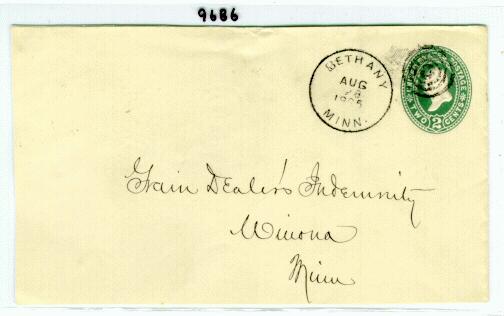 9686
BETHANY
AUG
28
MINN.
POSTAGE
TWO 2 CENTS
Grain Dealer's Indemnity
Winona
Minn